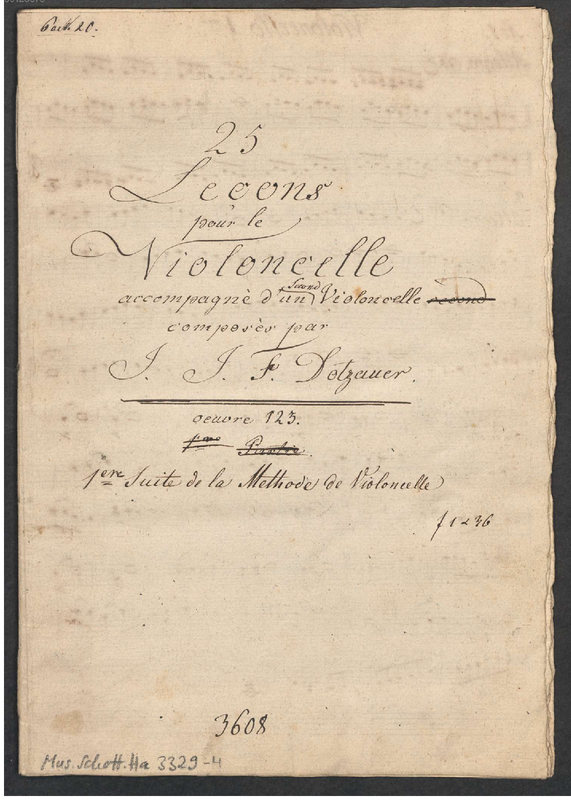 Pack 20.
25
Leçons
pour le
Violoncelle
accompagné d'un second Violoncelle second
composés par
J. J. F. Dotzauer.
oeuvre 123.
Partie.
1ere Suite de la Methode de Violoncelle
f 1 x 36
3608
Mus. Schott. Ha 3329-4